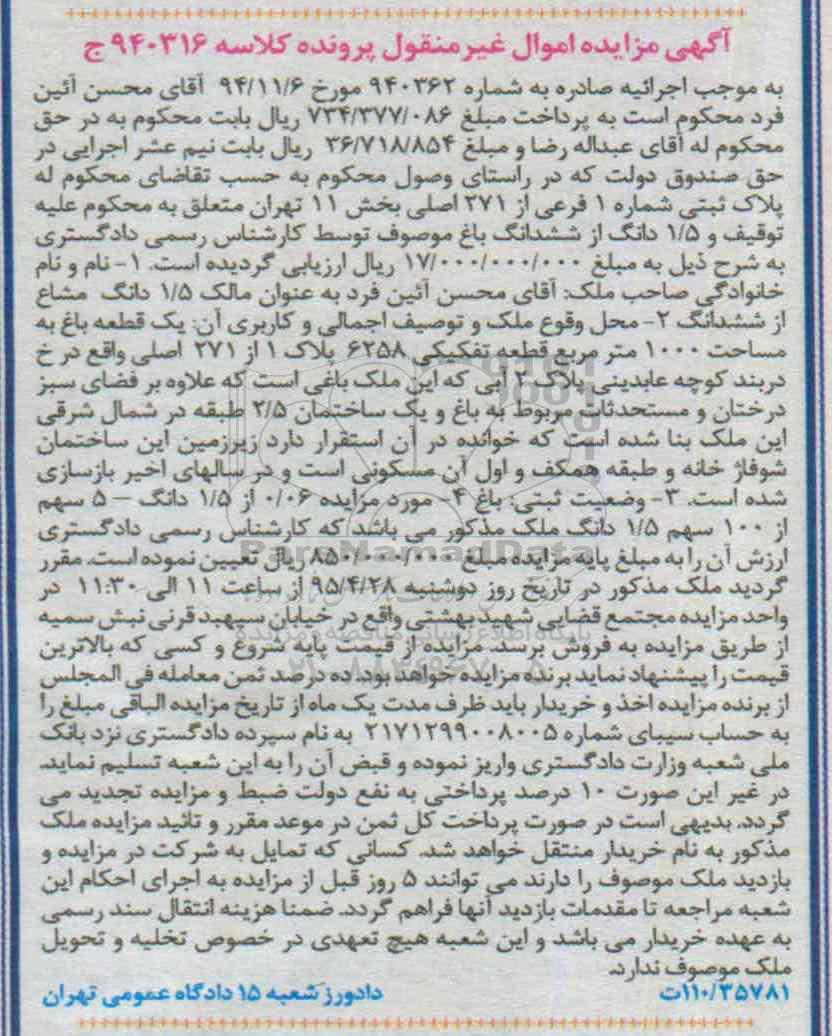 آگهی مزایده اموال غیرمنقول پرونده کلاسه ۹۴۰۳۱۶ ج
به موجب اجرائیه صادره به شماره ۹۴۰۳۶۲ مورخ ۹۴/۱۱/۶ آقای محسن آئین
فرد محکوم است به پرداخت مبلغ ۷۳۴/۳۷۷/۰۸۶ ریال بابت محکوم به در حق
محکوم له آقای عبداله رضا و مبلغ ۳۶/۷۱۸/۸۵۴ ریال بابت نیم عشر اجرایی در
حق صندوق دولت که در راستای وصول محکوم به حسب تقاضای محکوم له
پلاک ثبتی شماره ۱ فرعی از ۲۷۱ اصلی بخش ۱۱ تهران متعلق به محکوم علیه
توقیف و ۱/۵ دانگ از ششدانگ باغ موصوف توسط کارشناس رسمی دادگستری
به شرح ذیل به مبلغ ۱۷/۰۰۰/۰۰۰/۰۰۰ ریال ارزیابی گردیده است. ۱- نام و نام
خانوادگی صاحب ملک: آقای محسن آئین فرد به عنوان مالک ۱/۵ دانگ مشاع
از ششدانگ ۲- محل وقوع ملک و توصیف اجمالی و کاربری آن: یک قطعه باغ به
مساحت ۱۰۰۰ متر مربع قطعه تفکیکی ۶۲۵۸ پلاک ۱ از ۲۷۱ اصلی واقع در خ
دربند کوچه عابدینی پلاک ۲ آبی که این ملک باغی است که علاوه بر فضای سبز
درختان و مستحدثات مربوط به باغ و یک ساختمان ۲/۵ طبقه در شمال شرقی
این ملک بنا شده است که خوانده در آن استقرار دارد زیرزمین این ساختمان
شوفاژ خانه و طبقه همکف و اول آن مسکونی است و در سالهای اخیر بازسازی
شده است. ۳- وضعیت ثبتی: باغ ۴- مورد مزایده ۰/۰۶ از ۱/۵ دانگ – ۵ سهم
از ۱۰۰ سهم ۱/۵ دانگ ملک مذکور می باشد که کارشناس رسمی دادگستری
ارزش آن را به مبلغ پایه مزایده مبلغ ۸۵۰/۰۰۰/۰۰۰ ریال تعیین نموده است. مقرر
گردید ملک مذکور در تاریخ روز دوشنبه ۹۵/۴/۲۸ از ساعت ۱۱ الی ۱۱:۳۰ در
واحد مزایده مجتمع قضایی شهید بهشتی واقع در خیابان سپهبد قرنی نبش سمیه
از طریق مزایده به فروش برسد. مزایده از قیمت پایه شروع و کسی که بالاترین
قیمت را پیشنهاد نماید برنده مزایده خواهد بود. ده درصد ثمن معامله فی المجلس
از برنده مزایده اخذ و خریدار باید ظرف مدت یک ماه از تاریخ مزایده الباقی مبلغ را
به حساب سیبای شماره ۲۱۷۱۲۹۹۰۰۸۰۰۵ به نام سپرده دادگستری نزد بانک
ملی شعبه وزارت دادگستری واریز نموده و قبض آن را به این شعبه تسلیم نماید.
در غیر این صورت ۱۰ درصد پرداختی به نفع دولت ضبط و مزایده تجدید می
گردد. بدیهی است در صورت پرداخت کل ثمن در موعد مقرر و تائید مزایده ملک
مذکور به نام خریدار منتقل خواهد شد. کسانی که تمایل به شرکت در مزایده و
بازدید ملک موصوف را دارند می توانند ۵ روز قبل از مزایده به اجرای احکام این
شعبه مراجعه تا مقدمات بازدید آنها فراهم گردد. ضمنا هزینه انتقال سند رسمی
به عهده خریدار می باشد و این شعبه هیچ تعهدی در خصوص تخلیه و تحویل
ملک موصوف ندارد.
۱۱۰/۳۵۷۸۱ت دادورز شعبه ۱۵ دادگاه عمومی تهران
ParsNamadData